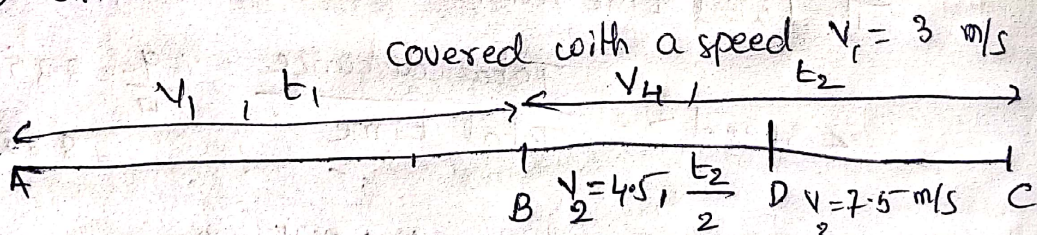 covered with a speed V₁ = 3 m/s
V₁, t₁ V₄, t₂
A B V₂=4.5, t₂/2 D V₃=7.5 m/s C